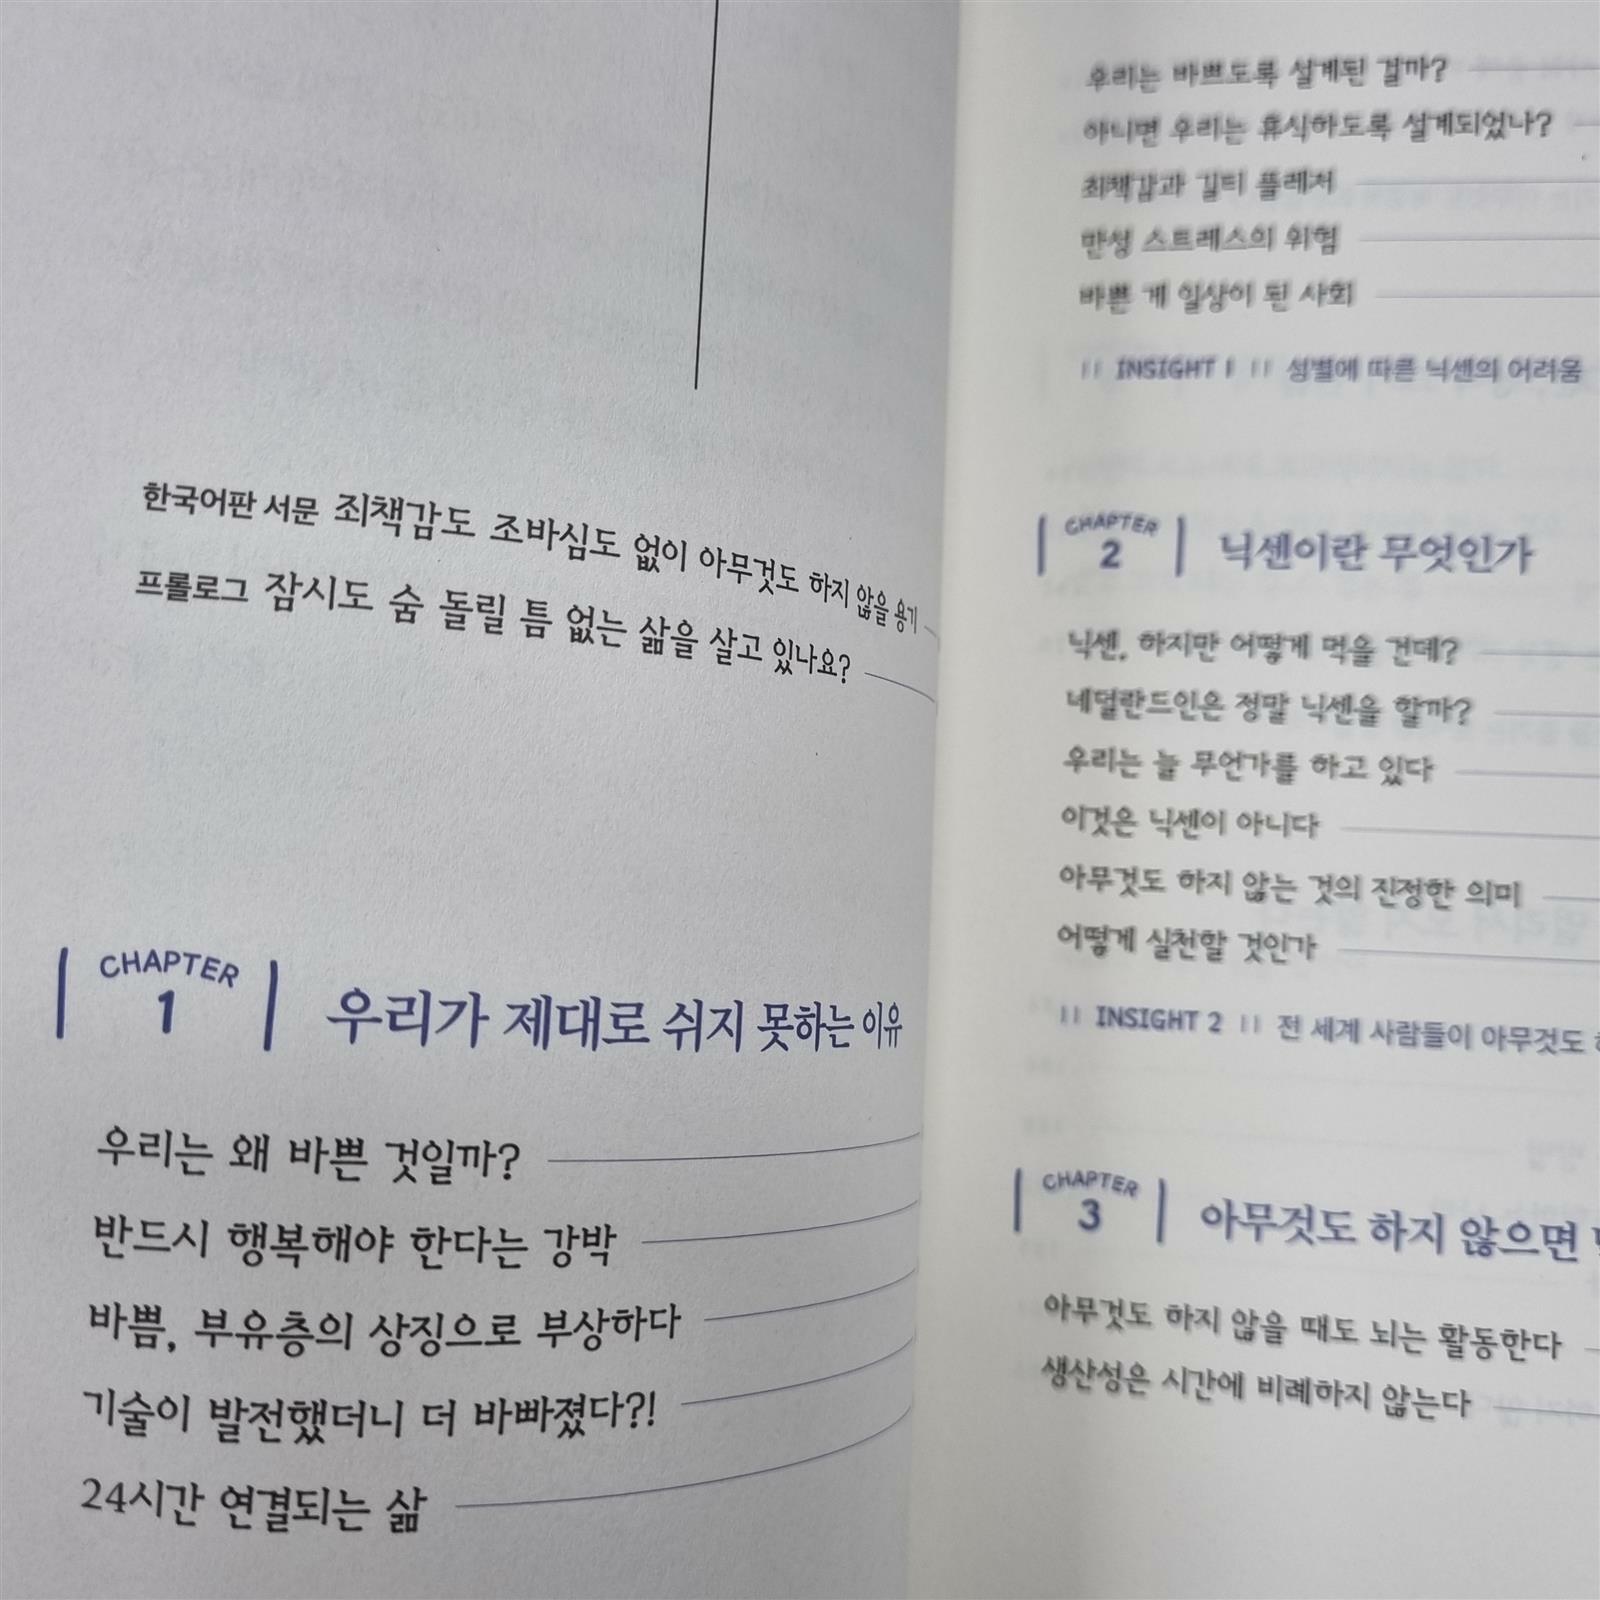 한국어판 서문 죄책감도 조바심도 없이 아무것도 하지 않을 용기
프롤로그 잠시도 숨 돌릴 틈 없는 삶을 살고 있나요?
CHAPTER 1 우리가 제대로 쉬지 못하는 이유
우리는 왜 바쁜 것일까?
반드시 행복해야 한다는 강박
바쁨, 부유층의 상징으로 부상하다
기술이 발전했더니 더 바빠졌다?!
24시간 연결되는 삶
우리는 바쁘도록 설계된 걸까?
아니면 우리는 휴식하도록 설계되었나?
죄책감과 길티 플레저
만성 스트레스의 위험
바쁜 게 일상이 된 사회
INSIGHT 1 성별에 따른 닉센의 어려움
CHAPTER 2 닉센이란 무엇인가
닉센, 하지만 어떻게 먹을 건데?
네덜란드인은 정말 닉센을 할까?
우리는 늘 무언가를 하고 있다
이것은 닉센이 아니다
아무것도 하지 않는 것의 진정한 의미
어떻게 실천할 것인가
INSIGHT 2 전 세계 사람들이 아무것도
CHAPTER 3 아무것도 하지 않으면
아무것도 하지 않을 때도 뇌는 활동한다
생산성은 시간에 비례하지 않는다